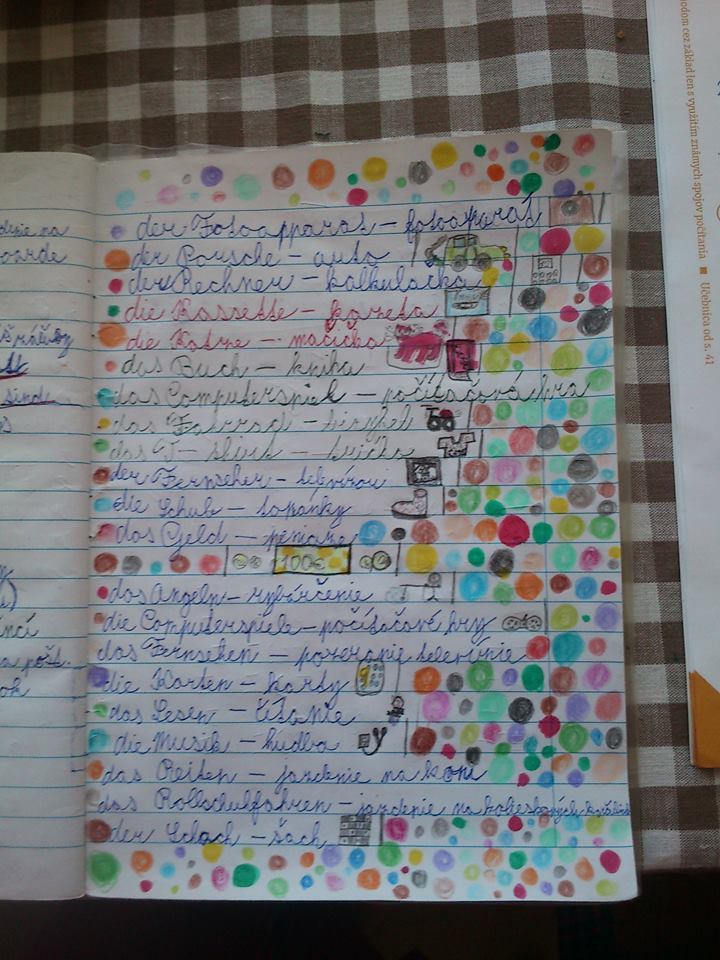 denie na
oarde
sind
nci
ok
der Fotoapparat – fotoaparat
der Porsche – auto
der Rechner – kalkulačka
die Kassette – kazeta
die Katze – mačička
das Buch – kniha
das Computerspiel – počítačová hra
das Fahrrad – bicykel
das T-Shirt – tričko
der Fernseher – televízor
die Schuh – topánky
das Geld – peniaze
100€
das Angeln – rybárčenie
die Computerspiele – počítačové hry
das Fernsehen – pozeranie televízie
die Karten – karty
das Lesen – čítanie
die Musik – hudba
das Reiten – jazdenie na koni
das Rollschulfahren – jazdenie na kolieskových korčuliach
der Schach – šach
odom cez základ len s využitím známych spojov počítania ■ Učebnica od s. 41